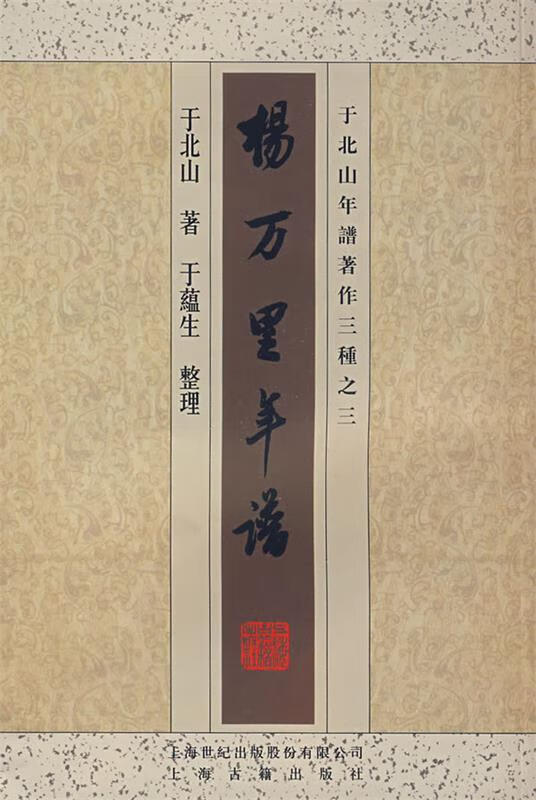 于北山年譜著作三種之三
楊万里年譜
于北山 著 于蘊生 整理
上海世纪出版股份有限公司
上海古籍出版社